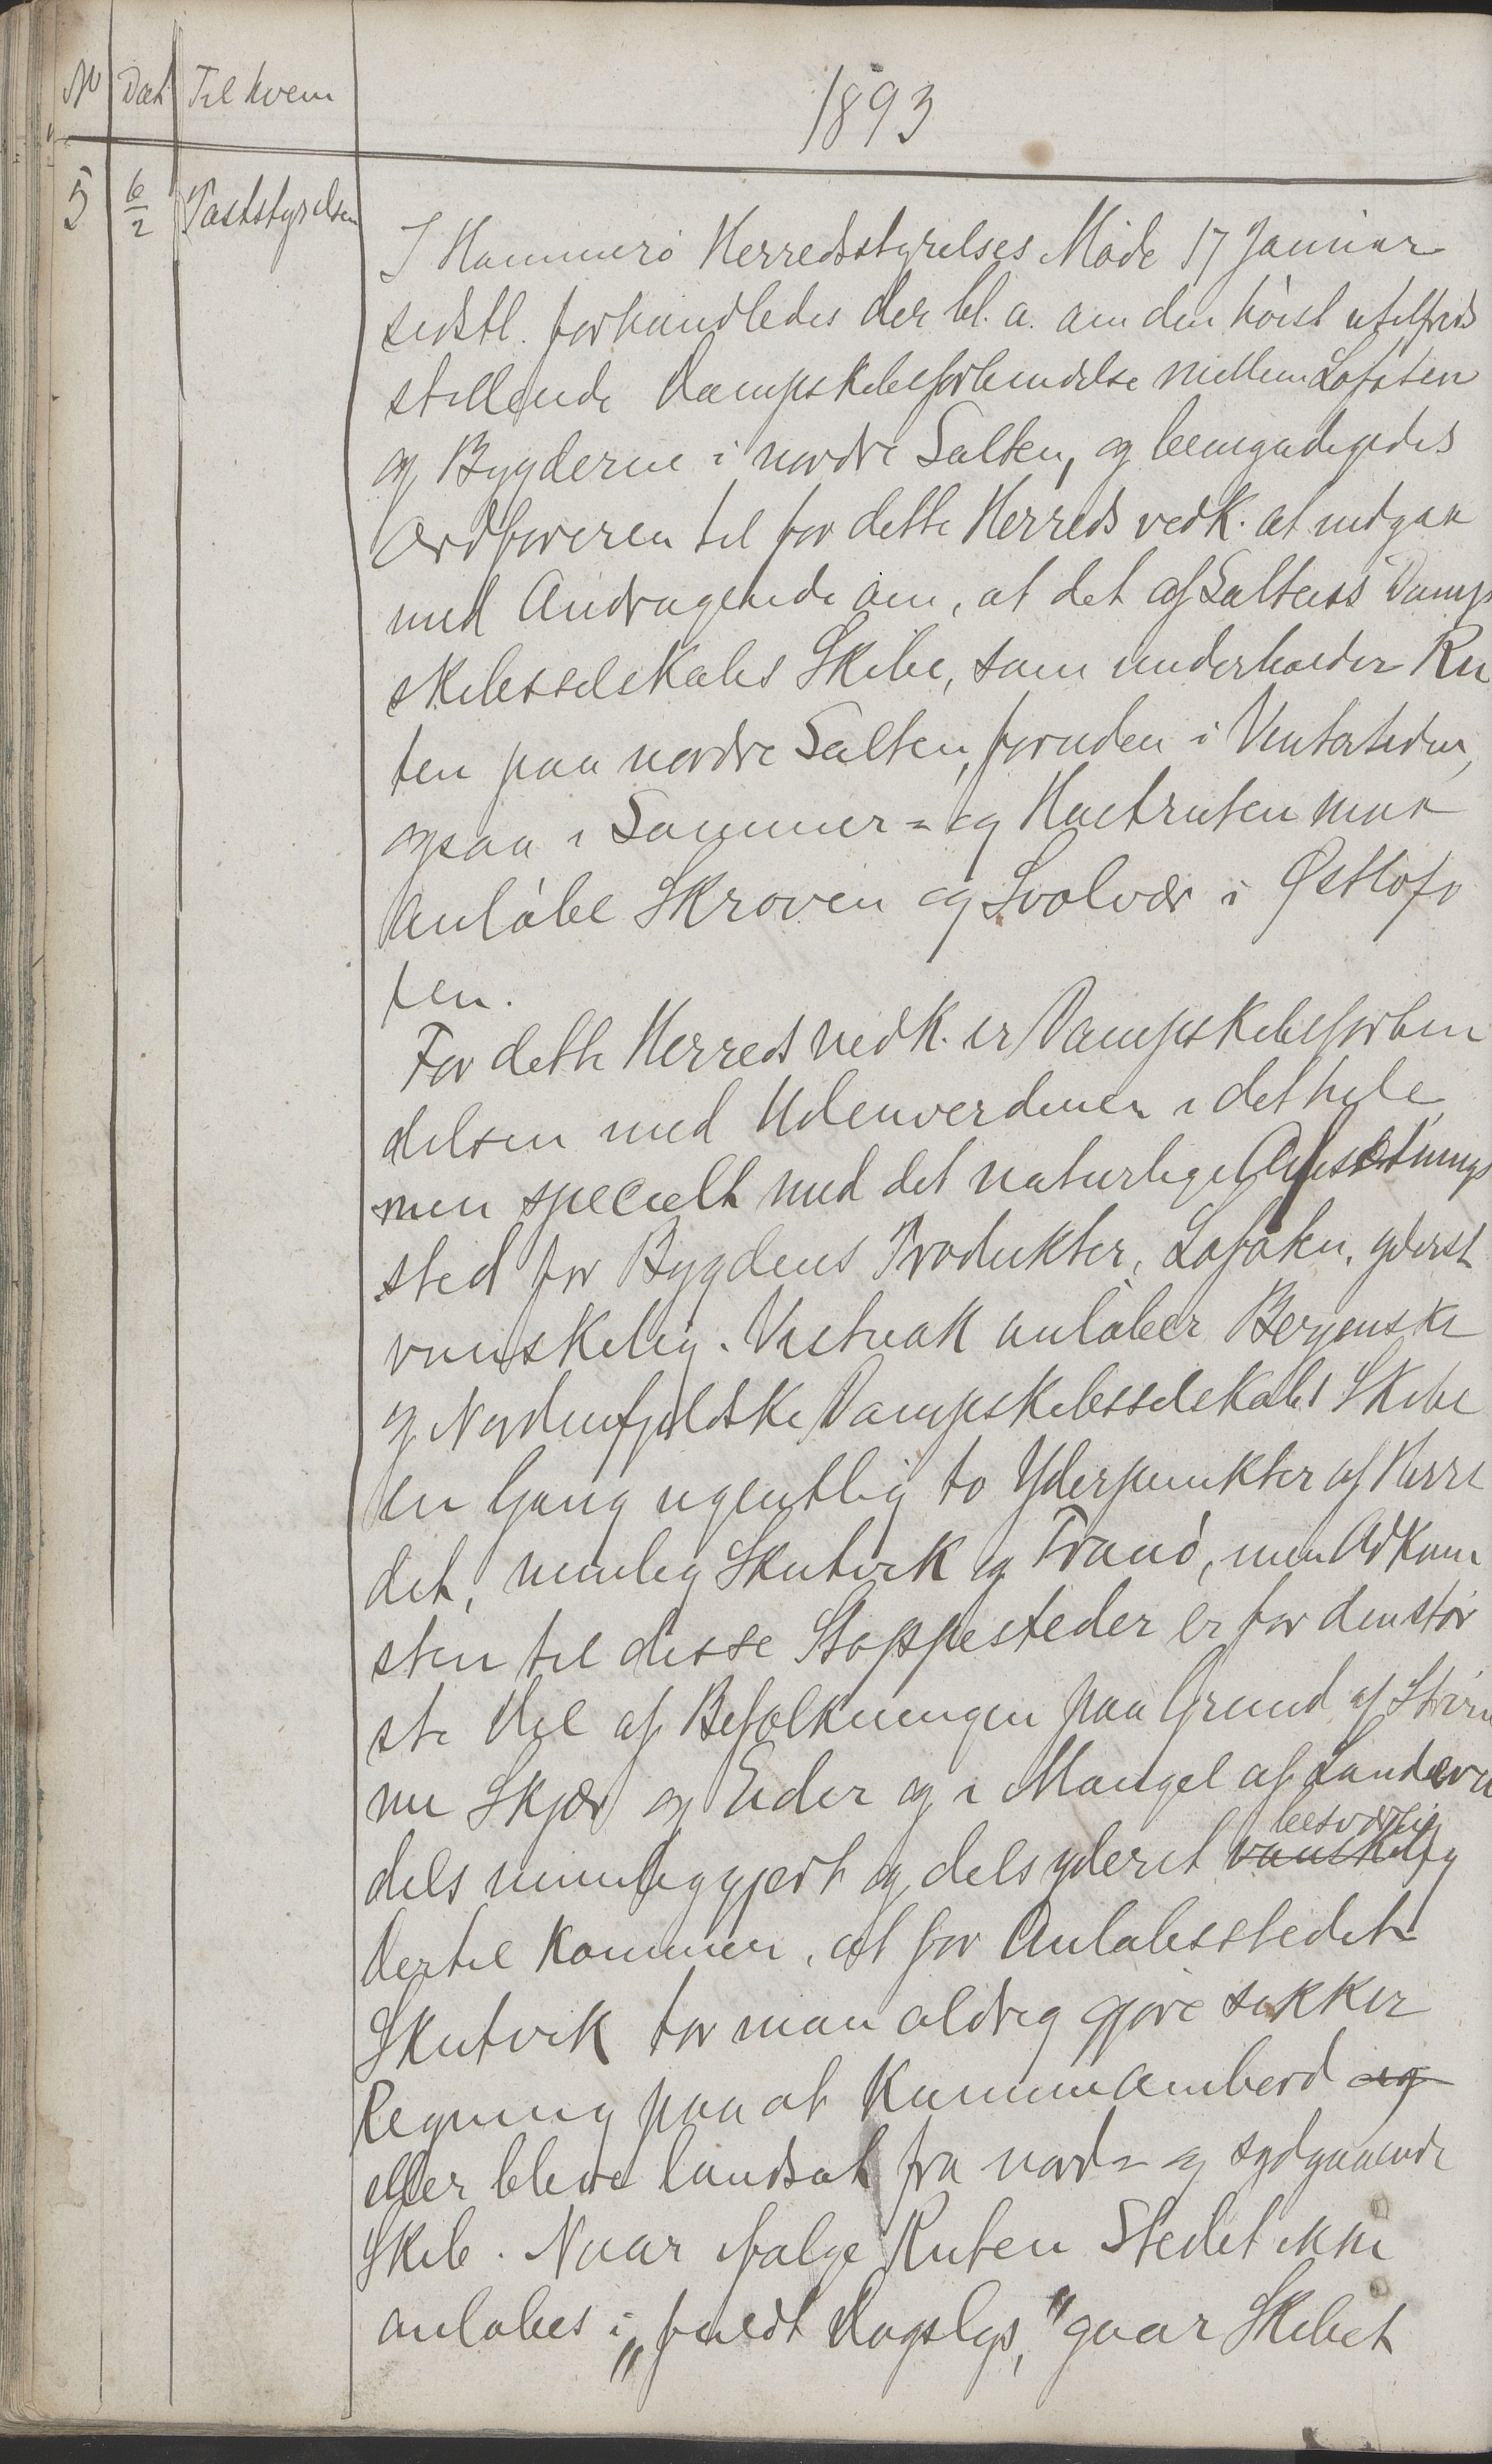 No Dat Til hvem 1893
5 6/2 Poststyrelsen
I Hammerö Herredsstyrelses Möde 17 Januar
sidstl. forhandledes der bl. a. om den höist utilfreds
stillende Dampskibsforbindelse mellem Lofoten
og Bygderne i nordre Salten, og bemyndigedes
Ordföreren til for dette Herreds vedk. at indgaa
med Andragende om, at det af Saltens Damp
skibsselskabs Skibe, som underholder Ru
ten paa nordre Salten, foruden i Vintertiden,
ogsaa i Sommer- og Höstruten maa
anlöbe Skroven og Svolvær i Østlofo
ten.
For dette Herreds vedk. er Dampskibsforbin
delsen med Udenverdenen i det hele
men specielt med det naturlige Afsætnings
sted for Bygdens Produkter, Lofoten, yderst
vanskelig. Vistnok anlöber Bergenske
og Nordenfjeldske Dampskibsselskabs Skibe
en Gang ugentlig to Yderpunkter af Herre
det, nemlig Skutvik og Tranö, men Adkom
sten til disse Stoppesteder er for den stör
ste Del af Befolkningen paa Grund af
Skjær og Eider og i Mangel af Landeveie
dels umuliggjort og dels yderst vanskelig besværlig
Dertil kommer, at for Anlöbsstedet
Skutvik tör man aldrig gjöre sikker
Regning paa at komme ombord og
eller blive landsat fra nord- og sydgaaende
Skib. Naar ifölge Ruten Stedet ikke
anlöbes i "fuldt Dagslys," gaar Skibet